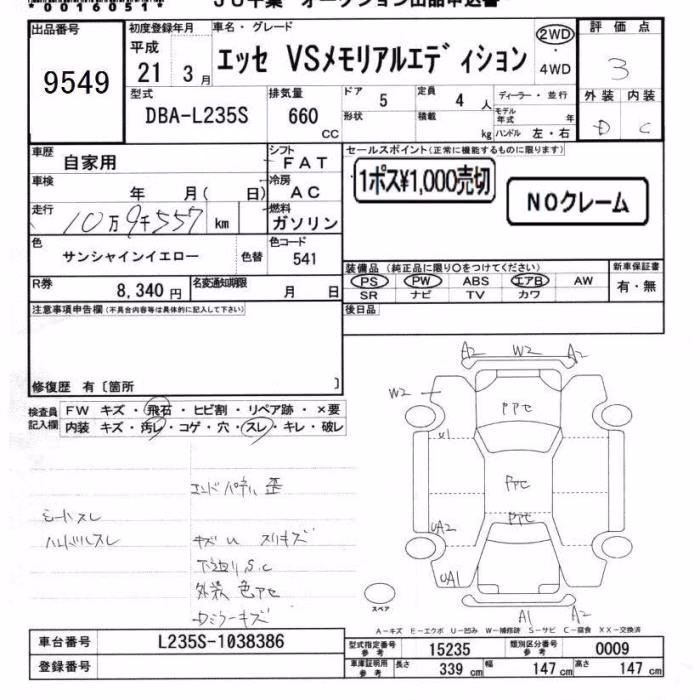 *0016051*
JU千葉 オークション出品申込書
出品番号
9549
初度登録年月
平成
21 3月
車名・グレード
エッセ VSメモリアルエディション
2WD
4WD
評価点
3
外装 内装
D C
型式
DBA-L235S
排気量
660
CC
ドア
5
定員
4 人
形状
積載
kg
ディーラー・並行
モデル年式 年
ハンドル 左・右
車歴
自家用
シフト
FAT
車検
年 月( 日)
冷房
AC
走行
10万9千557 km
燃料
ガソリン
色
サンシャインイエロー
色替
色コード
541
R券
8,340 円
名変通知期限
月 日
セールスポイント(正常に機能するものに限ります)
1ポス¥1,000売切
NOクレーム
装備品(純正品に限り○をつけてください)
PS PW ABS エアB AW
SR ナビ TV カワ
新車保証書
有・無
後日品
注意事項申告欄(不具合内容等は具体的に記入して下さい)
修復歴 有〔箇所 〕
検査員記入欄
FW キズ・飛石・ヒビ割・リペア跡・×要
内装 キズ・汚レ・コゲ・穴・スレ・キレ・破レ
エンドパネル 歪
シートスレ
ハンドルスレ
キズU スリキズ
下廻りS.C
外装 色アセ
Dミラーキズ
A2 W2 A2
W2
アセ
U1
アセ
アセ
UA2
UA1
A1 A2
スペア
A-キズ E-エクボ U-凹み W-補修跡 S-サビ C-腐食 XX-交換済
車台番号
L235S-1038386
登録番号
型式指定番号 参考
15235
類別区分番号 参考
0009
車庫証明用 参考
長さ 339 cm
幅 147 cm
高さ 147 cm